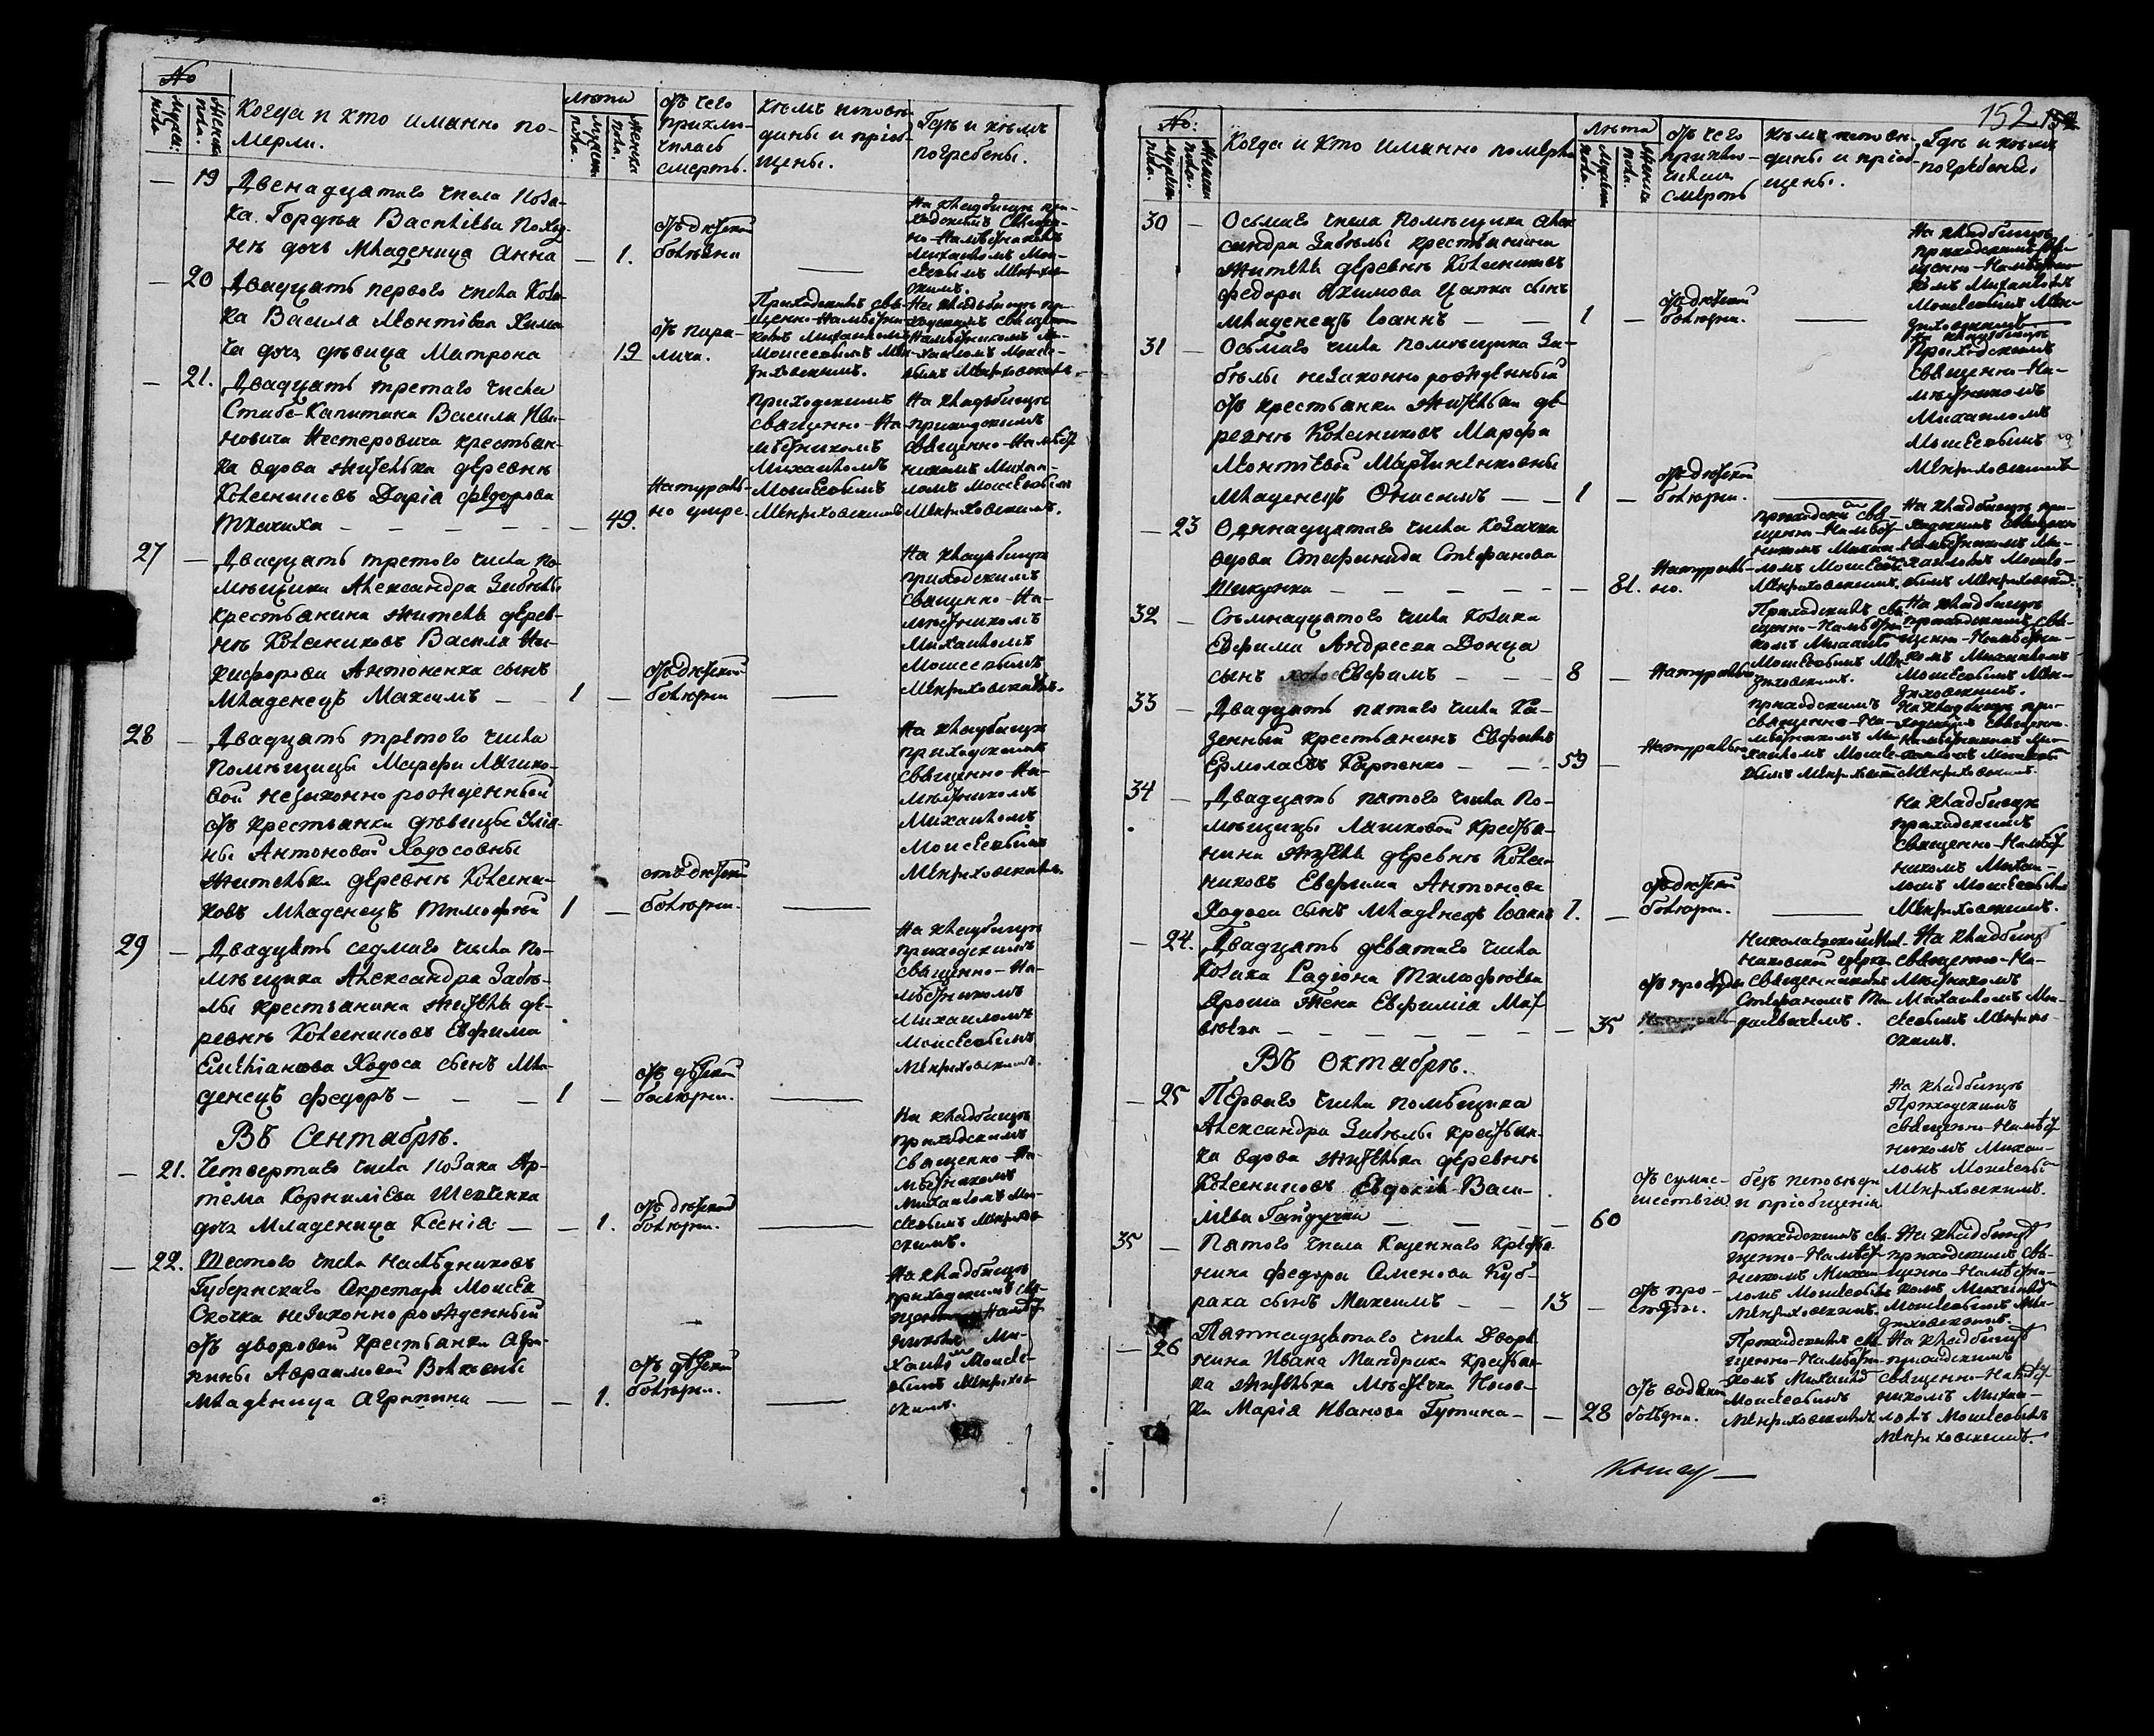 №
Мужеск. пола.
Женска пола.
Когда и кто именно по-
мерли.
Лѣта
Мужеск. пола.
Женска пола.
Отъ чего
приклю-
чилась
смерть.
Кѣмъ исповѣ-
дины и пріоб-
щены.
Гдѣ и кѣмъ
погребены.
— 19 Двенадцатаго числа Коза-
ка Гордѣя
дочь младеница Анна — 1.
Отъ дѣтской
болѣзни
На кладбищѣ при-
ходскимъ Священ-
но-Намѣстникомъ
Михаиломъ Мои-
сеевымъ
— 20 Двадцать перваго числа Коза-
ка Василя Леонтіева
дочь дѣвица Матрона 19
Отъ пара-
лича.
Приходскимъ Свя-
щенно-Намѣстни-
комъ Михаиломъ
Моисеевымъ
На кладбищѣ при-
ходскимъ Священно-
Намѣстникомъ Ми-
хаиломъ Моисее-
вымъ
— 21. Двадцать третаго числа
Стабс-Капитана Василя Ива-
новича Нестеровича крестьян-
ка вдова жителька деревнѣ
Колесниковъ Дарія Федорова
Ткачиха — — — — 49.
Натураль-
но умре.
Приходскимъ
Священно-На-
мѣстникомъ
Михаиломъ
Моисеевымъ
На кладбищѣ
приходскимъ
Священно-Намѣст-
никомъ Михаи-
ломъ Моисеевымъ
27 — Двадцать третого числа по-
мѣщика Александра Забѣлы
крестьянина жителя дерев-
нѣ Колесниковъ Василя Ни-
кифорова Антоненка сынъ
младенецъ Максимъ — 1 —
Отъ дѣтской
болѣзни
На кладбищѣ
приходскимъ
Священно-На-
мѣстникомъ
Михаиломъ
Моисеевымъ
28 — Двадцать третого числа
помѣщицы Марфы
вой незаконно рожденный
отъ крестьянки дѣвицы Улія-
ны Антоновой Ходосовны
жительки деревнѣ Колесни-
ковъ младенецъ Тимофтѣй 1 —
отъ дѣтской
болѣзни.
На кладбищѣ
приходскимъ
Священно-На-
мѣстникомъ
Михаиломъ
Моисеевымъ
29 — Двадцать седмаго числа по-
мѣщика Александра Забѣ-
лы крестьянина жителя де-
ревнѣ Колесниковъ Евфима
Емельянова Ходоса сынъ мла-
денецъ Федоръ — — — 1 —
Отъ дѣтской
болѣзни.
На кладбищѣ
приходскимъ
Священно-На-
мѣстникомъ
Михаиломъ
Моисеевымъ
Въ Сентябрѣ.
— 21. Четвертаго числа Козака Ар-
тема Корниліева Шевченка
дочь Младеница Ксенія — — 1.
Отъ дѣтской
болѣзни.
На кладбищѣ
приходскимъ
Священно-На-
мѣстникомъ
Михаиломъ Мои-
сеевымъ
— 22. Шестого числа наслѣдниковъ
Губернскаго Секретаря Моисея
незаконно рожденный
отъ дворовой крестьянки Агри-
пины Авраамовой
младеница Агрипина — — 1.
Отъ дѣтской
болѣзни.
На кладбищѣ
приходскимъ Свя-
щенно-Намѣст-
никомъ Ми-
хаиломъ Моисее-
вымъ
152
№:
Мужеск. пола.
Женска пола.
Когда и кто именно померли
Лѣта
Мужеск. пола.
Женска пола.
Отъ чего
приклю-
чилась
смерть
Кѣмъ исповѣ-
дины и пріоб-
щены.
Гдѣ и кѣмъ
погребены.
30 — Осьмаго числа помѣщика Алек-
сандра Забѣлы крестьянина
жителя деревнѣ Колесниковъ
Федора Якимова Цапка сынъ
младенецъ Іоаннъ — — 1 —
Отъ дѣтской
болѣзни.
На кладбищѣ
приходскимъ Свя-
щенно-Намѣстни-
комъ Михаиломъ
Моисеевымъ
31 — Осьмаго числа помѣщика За-
бѣлы незаконно рожденный
отъ крестьянки жительки де-
ревнѣ Колесниковъ Марфы
Леонтіевой Мартиненковны
младенецъ Онисимъ — — 1 —
Отъ дѣтской
болѣзни.
На кладбищѣ
Приходскимъ
Священно-На-
мѣстникомъ
Михаиломъ
Моисеевымъ
— 23 Одинадцатаго числа Козачка
вдова Стефанида Стефанова
— — — — — 81.
Натураль-
но.
приходскимъ Свя-
щенно-Намѣст-
никомъ Михаи-
ломъ Моисеевымъ
На кладбищѣ при-
ходскимъ Священно-
Намѣстникомъ Ми-
хаиломъ Моисее-
вымъ
32 — Седмнадцатого числа Козака
Евфима Андреева Донца
сынъ Евфимъ — — — 8 —
Натурально
Приходскимъ Свя-
щенно-Намѣстни-
комъ Михаило
Моисеевымъ
На кладбищѣ
приходскимъ Свя-
щенно-Намѣстни-
комъ Михаиломъ
Моисеевымъ
33 — Двадцать пятаго числа Ка-
зенный крестьянинъ Евфимъ
Ермолаевъ Карпенко — — 59 —
Натурально
приходскимъ
Священно-На-
мѣстникомъ Ми-
хаиломъ Моисее-
вымъ
На кладбищѣ при-
ходскимъ Священно-
Намѣстникомъ Ми-
хаиломъ
34 — Двадцать пятого числа по-
мѣщицы Лашковой крестья-
нина жителя деревнѣ Колес-
никовъ Евфима Антонова
Ходоса сынъ младенецъ Іоаннъ 1. —
Отъ дѣтской
болѣзни.
На кладбищѣ
приходскимъ
Священно-Намѣст
никомъ Михаи-
ломъ Моисеевымъ
— 24. Двадцать девятаго числа
Козака Радіона Тимофтѣева
Яроша жена Евфимія Мат-
вѣева — — — — — 35
Отъ простуды
Николаевской
церкви
Священникомъ
Стефаномъ
На кладбищѣ
Священно-На-
мѣстникомъ
Михаиломъ Мои-
сеевымъ
Въ Октябрѣ.
— 25 Перваго числа помѣщика
Александра Забѣлы крестьян-
ка вдова жителька деревнѣ
Колесниковъ Евдокія Васи-
лева Гайдучка — — — — 60
Отъ сумас-
шествія
безъ исповѣди
и пріобщенія
На кладбищѣ
Приходскимъ
Священно-Намѣст
никомъ Михаи-
ломъ Моисеевы
35 — Пятого числа Казенного Крестья-
нина Федора Семенова Куб-
рака сынъ Максимъ — — 13 —
Отъ про-
студы.
приходскимъ Свя-
щенно-Намѣст-
никомъ Михаи-
ломъ Моисеевымъ
На кладбищѣ
приходскимъ Свя-
щенно-Намѣстни-
комъ Михаиломъ
Моисеевымъ
— 26 Пятнадцатого числа Дворя-
нина Ивана Мандрики Крестьян-
ка жителька Мѣстечка Носов-
ки Марія Иванова — — 28
Отъ водяной
болѣзни.
Приходскимъ Свя-
щенно-Намѣстни-
комъ Михаило
Моисеевымъ
На кладбищѣ
приходскимъ
Священно-Намѣст-
никомъ Михаи-
ломъ Моисеевымъ